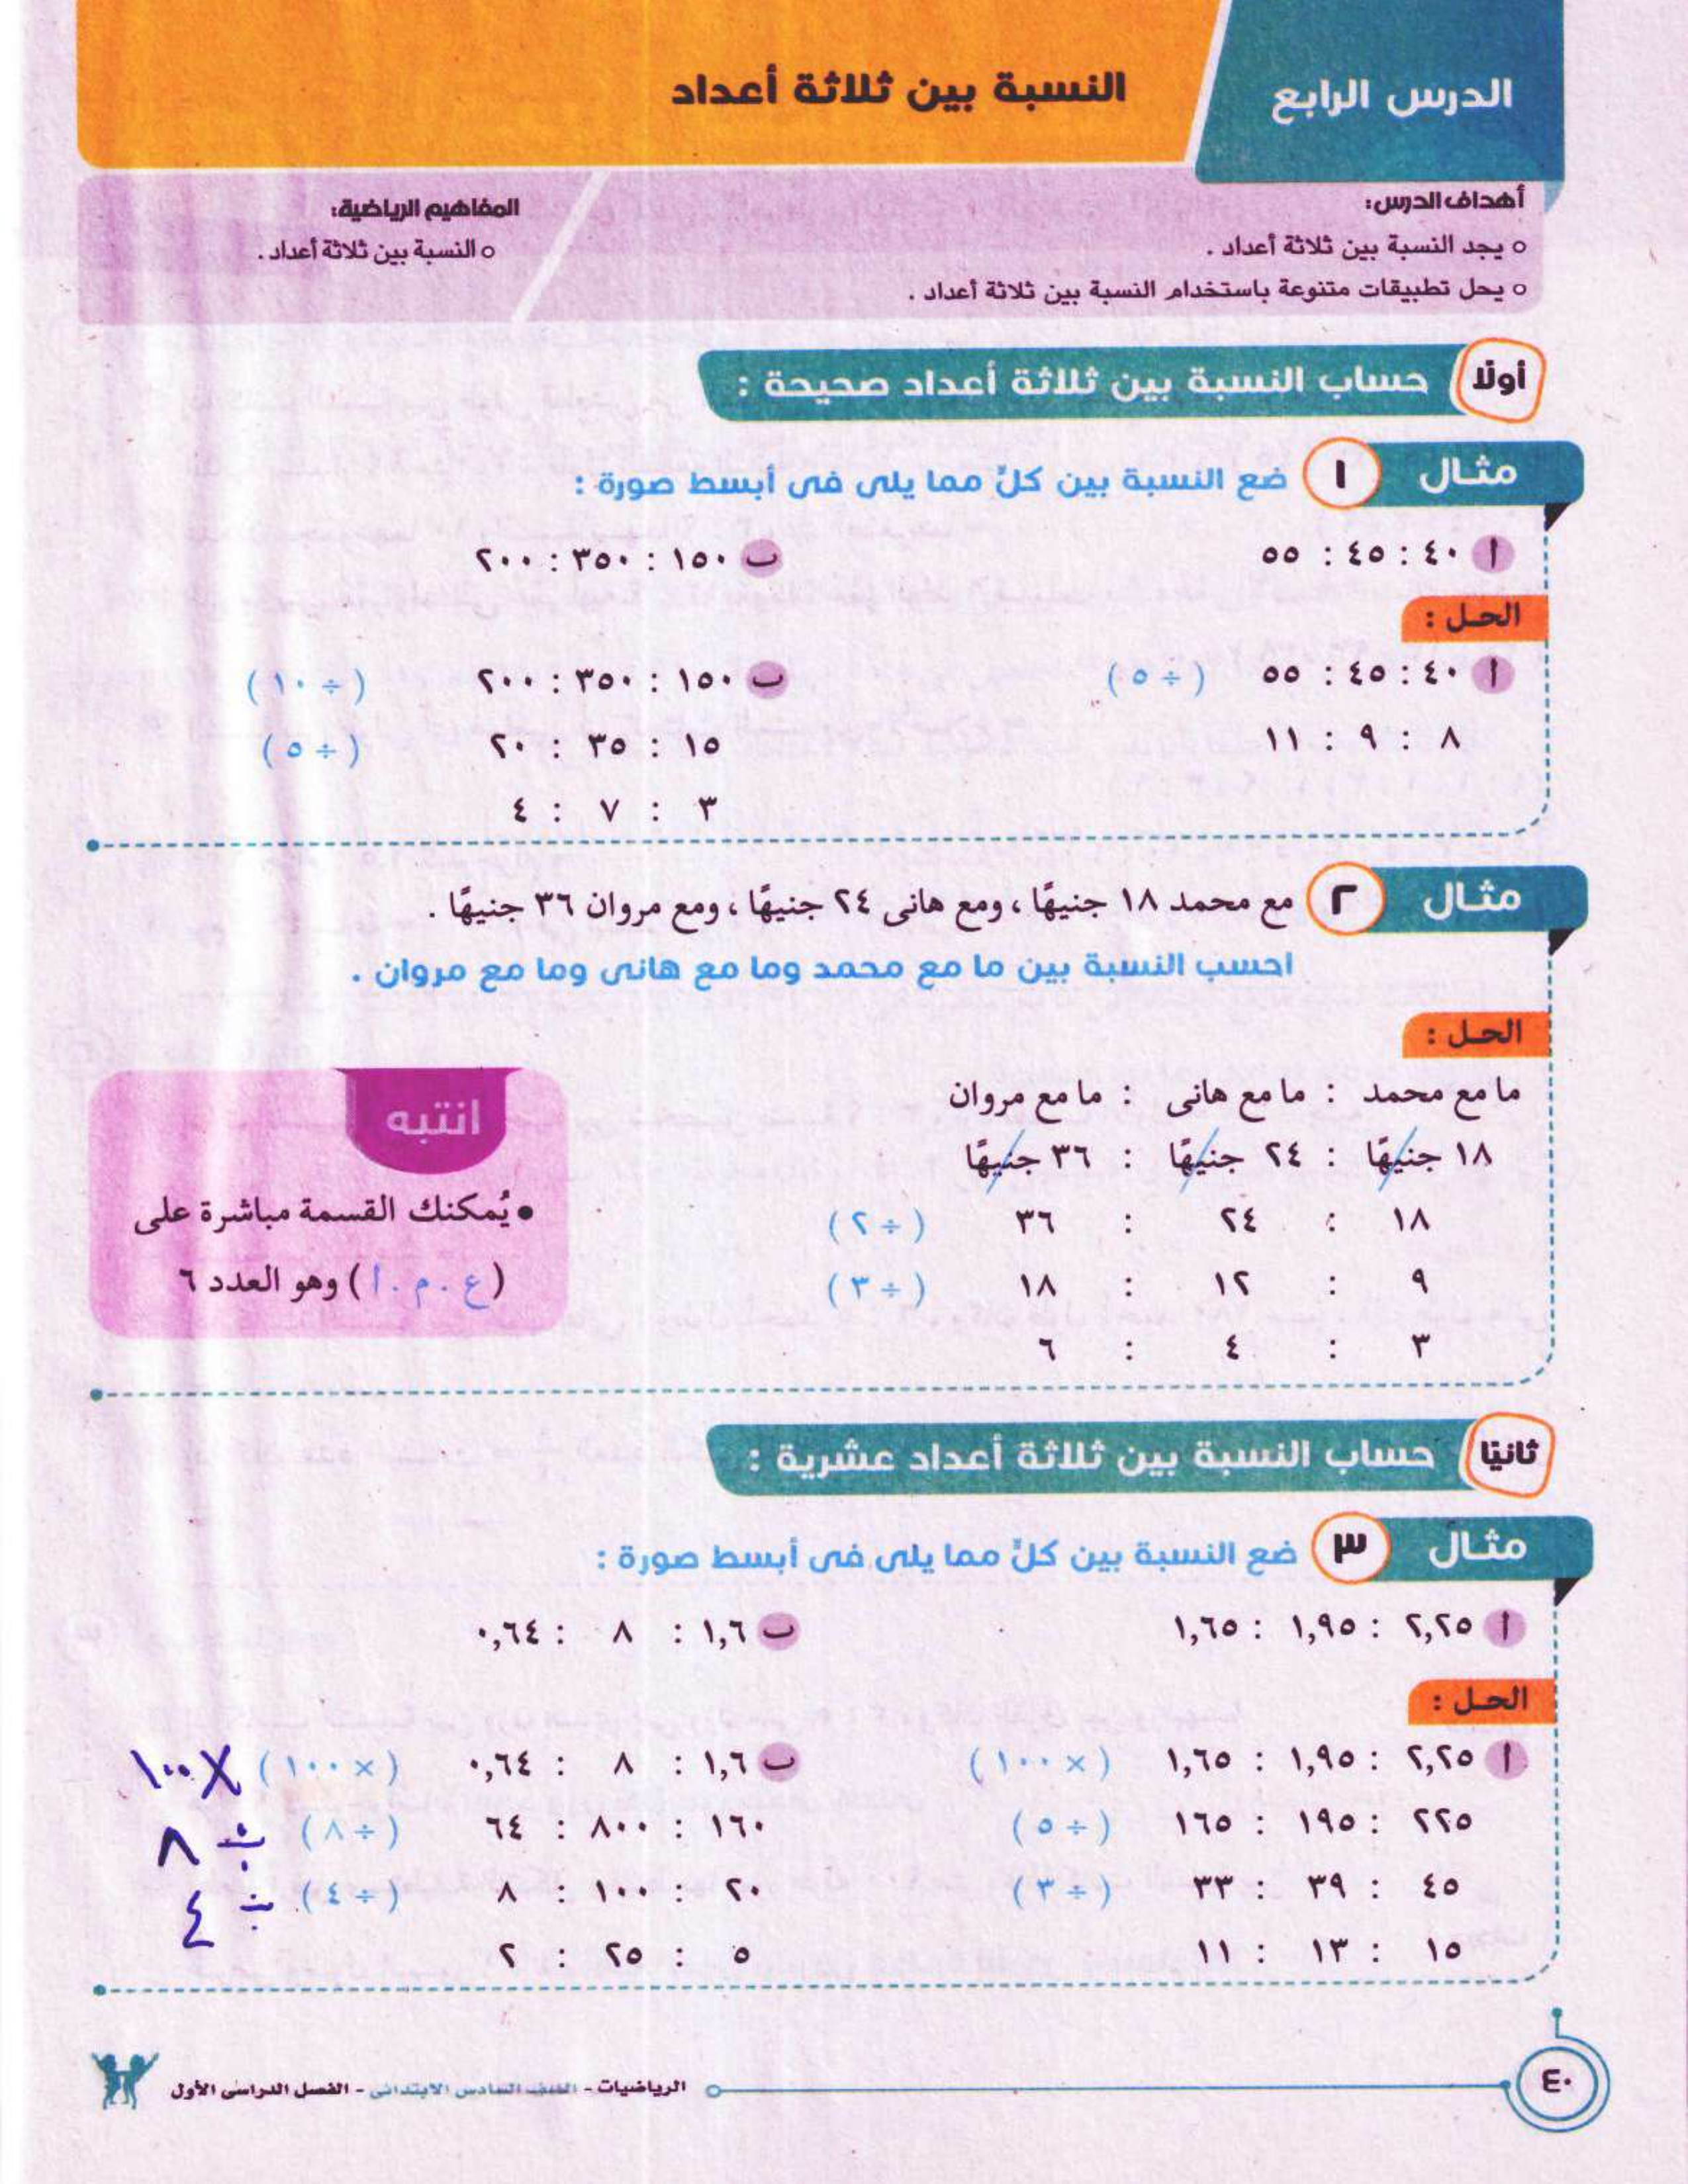 الدرس الرابع
النسبة بين ثلاثة أعداد
أهداف الدرس:
○ يجد النسبة بين ثلاثة أعداد .
○ يحل تطبيقات متنوعة باستخدام النسبة بين ثلاثة أعداد .
المفاهيم الرياضية:
○ النسبة بين ثلاثة أعداد .
أولًا حساب النسبة بين ثلاثة أعداد صحيحة :
مثال ١ ضع النسبة بين كلٍّ مما يلى فى أبسط صورة :
أ ٤٠ : ٤٥ : ٥٥
ب ١٥٠ : ٣٥٠ : ٢٠٠
الحل :
أ ٤٠ : ٤٥ : ٥٥ ( ÷ ٥ )
٨ : ٩ : ١١
ب ١٥٠ : ٣٥٠ : ٢٠٠ ( ÷ ١٠ )
١٥ : ٣٥ : ٢٠ ( ÷ ٥ )
٣ : ٧ : ٤
مثال ٢ مع محمد ١٨ جنيهًا ، ومع هانى ٢٤ جنيهًا ، ومع مروان ٣٦ جنيهًا .
احسب النسبة بين ما مع محمد وما مع هانى وما مع مروان .
الحل :
ما مع محمد : ما مع هانى : ما مع مروان
١٨ جنيهًا : ٢٤ جنيهًا : ٣٦ جنيهًا
١٨ : ٢٤ : ٣٦ ( ÷ ٢ )
٩ : ١٢ : ١٨ ( ÷ ٣ )
٣ : ٤ : ٦
انتبه
• يُمكنك القسمة مباشرة على
( ع . م . أ ) وهو العدد ٦
ثانيًا حساب النسبة بين ثلاثة أعداد عشرية :
مثال ٣ ضع النسبة بين كلٍّ مما يلى فى أبسط صورة :
أ ٢,٢٥ : ١,٩٥ : ١,٦٥
ب ١,٦ : ٨ : ٠,٦٤
الحل :
أ ٢,٢٥ : ١,٩٥ : ١,٦٥ ( × ١٠٠ )
٢٢٥ : ١٩٥ : ١٦٥ ( ÷ ٥ )
٤٥ : ٣٩ : ٣٣ ( ÷ ٣ )
١٥ : ١٣ : ١١
ب ١,٦ : ٨ : ٠,٦٤ ( × ١٠٠ ) × ١٠٠
١٦٠ : ٨٠٠ : ٦٤ ( ÷ ٨ ) ÷ ٨
٢٠ : ١٠٠ : ٨ ( ÷ ٤ ) ÷ ٤
٥ : ٢٥ : ٢
٤٠
الرياضيات - الصف السادس الابتدائى - الفصل الدراسى الأول